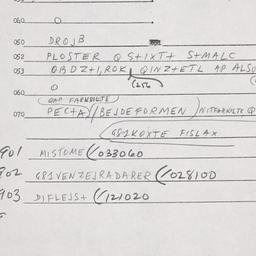 060 0
050 DROJB
052 PLOSTER Q S+IXT+ S+MALC
053 OBDZ+1, ROK, QINZ+ETL AP ALSO
(256
060 0
QAP FARKBILTE
070 PEC+A)(BEJDEFORMEN) NITFARKILTE Q
G81KOXTE FISLAX
901 MISTOME (/033060
902 G81VENZEJRADARER (/028100
903 DIFLEJS+ (/121020